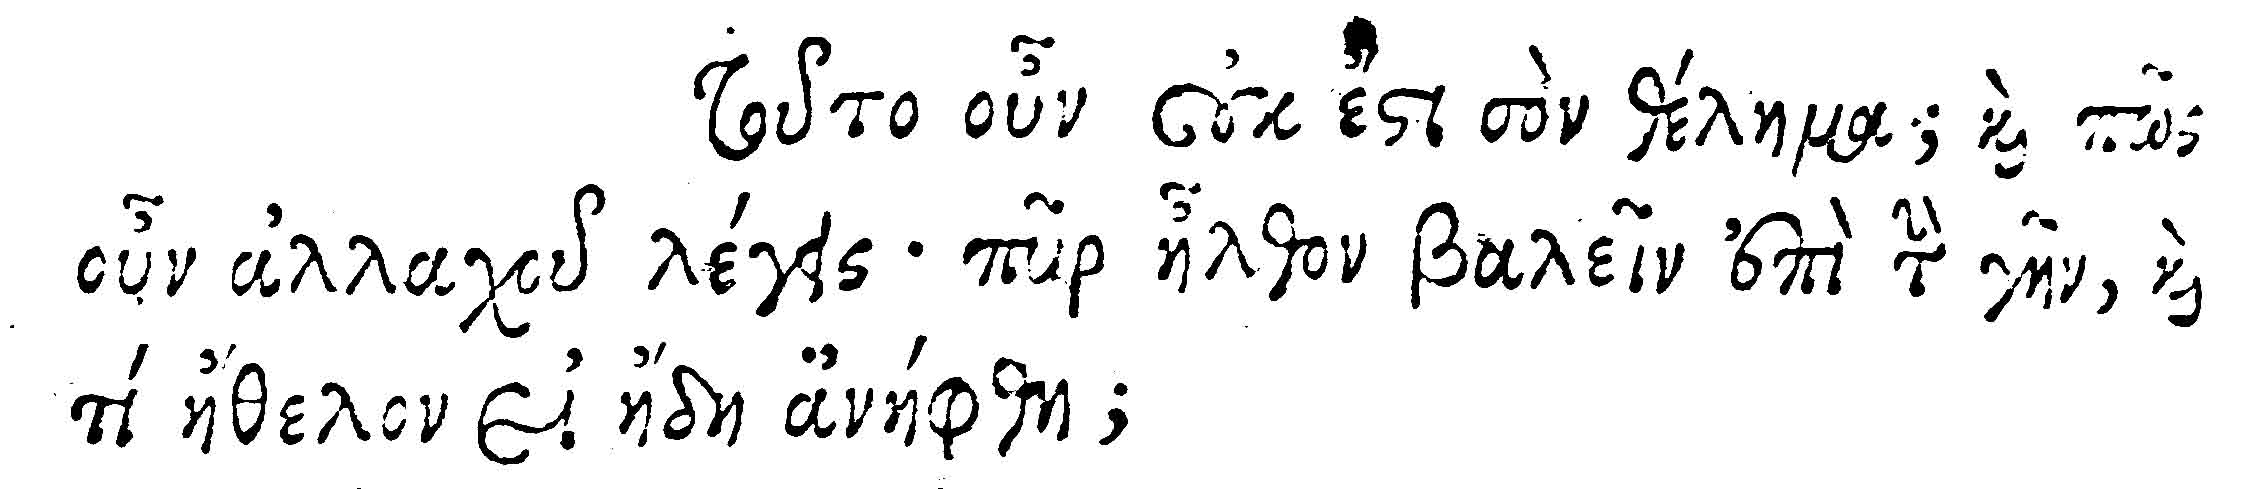 Τοῦτο οὖν οὐκ ἔστι σὸν θέλημα; καὶ πῶς
οὖν ἀλλαχοῦ λέγεις· πῦρ ἦλθον βαλεῖν ἐπὶ τὴν γῆν, καὶ
τί ἤθελον εἰ ἤδη ἀνήφθη;